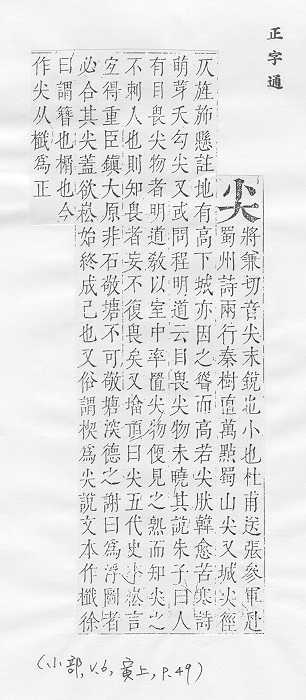 正字通
尖 將兼切音尖末銳也小也杜甫送張參軍赴
蜀州詩兩行秦樹直萬點蜀山尖又城尖徑
仄旌旆懸註地有高下城亦因之聳而高若尖狀韓愈苦寒詩
萌芽夭勾尖又或問程明道云目畏尖物未曉其說朱子曰人
有目畏尖物者明道敎以室中率置尖物便見之熟而知尖之
不刺人也則知畏者妄不復畏矣又墖頂曰尖五代史李崧言
宐得重臣鎮大原非石敬瑭不可敬瑭深德之謝曰爲浮圖者
必合其尖蓋欲崧始終成己也又俗謂楔爲尖說文本作櫼徐
曰謂簪也也今
作尖从櫼爲正
(小部, v.6, 寅上, p.49)